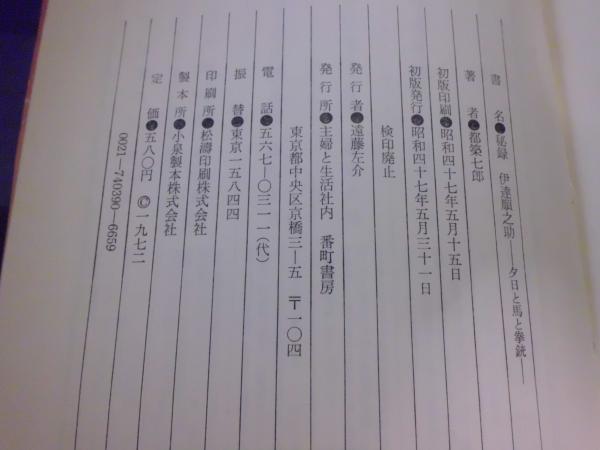 書名●秘録 伊達順之助――夕日と馬と拳銃――
著者●都築七郎
初版印刷●昭和四十七年五月十五日
初版発行●昭和四十七年五月三十一日
検印廃止
発行者●遠藤左介
発行所●主婦と生活社内 番町書房
東京都中央区京橋三―五 〒一〇四
電話●五六七―〇三一一(代)
振替●東京一五八四四
印刷所●松濤印刷株式会社
製本所●小泉製本株式会社
定価●五八〇円 ©一九七二
0021―740390―6659